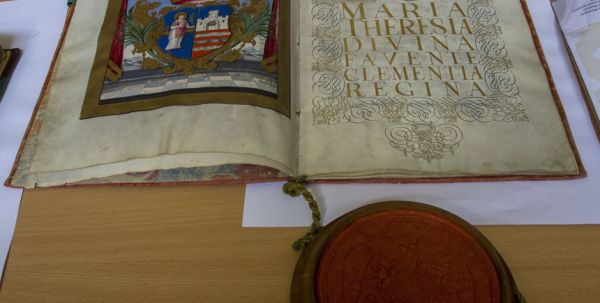 MARIA
THERESIA
DIVINA
FAVENTE
CLEMENTIA
REGINA